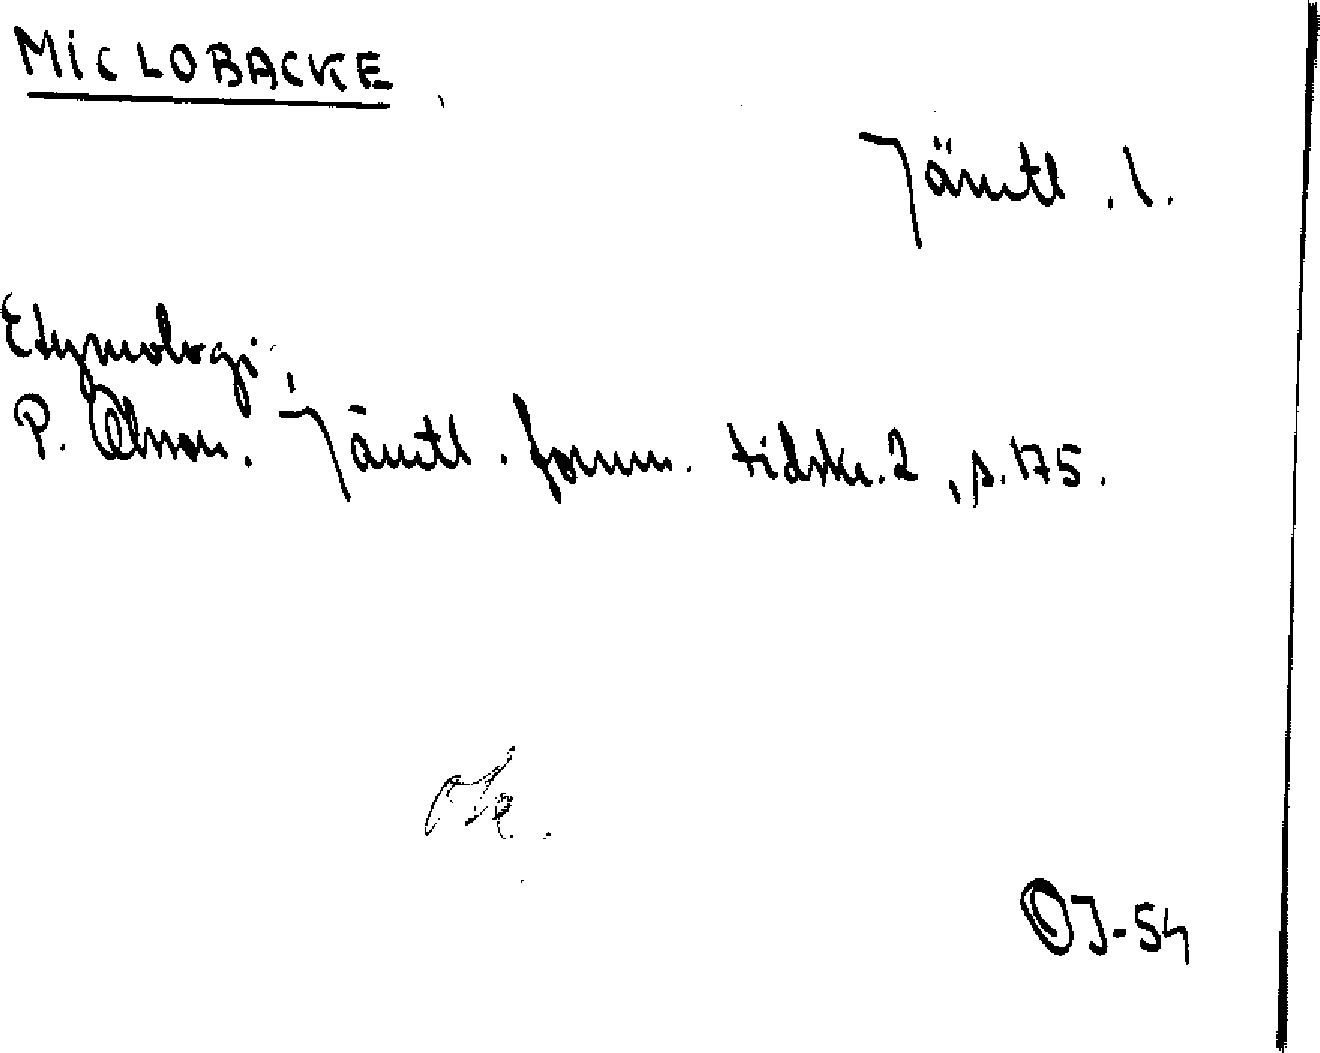 MICLOBACKE
Jämtl. l.
Etymologi:
P. Olsson. Jämtl. fornm. tidskr. 2, s. 175.
OJ-54